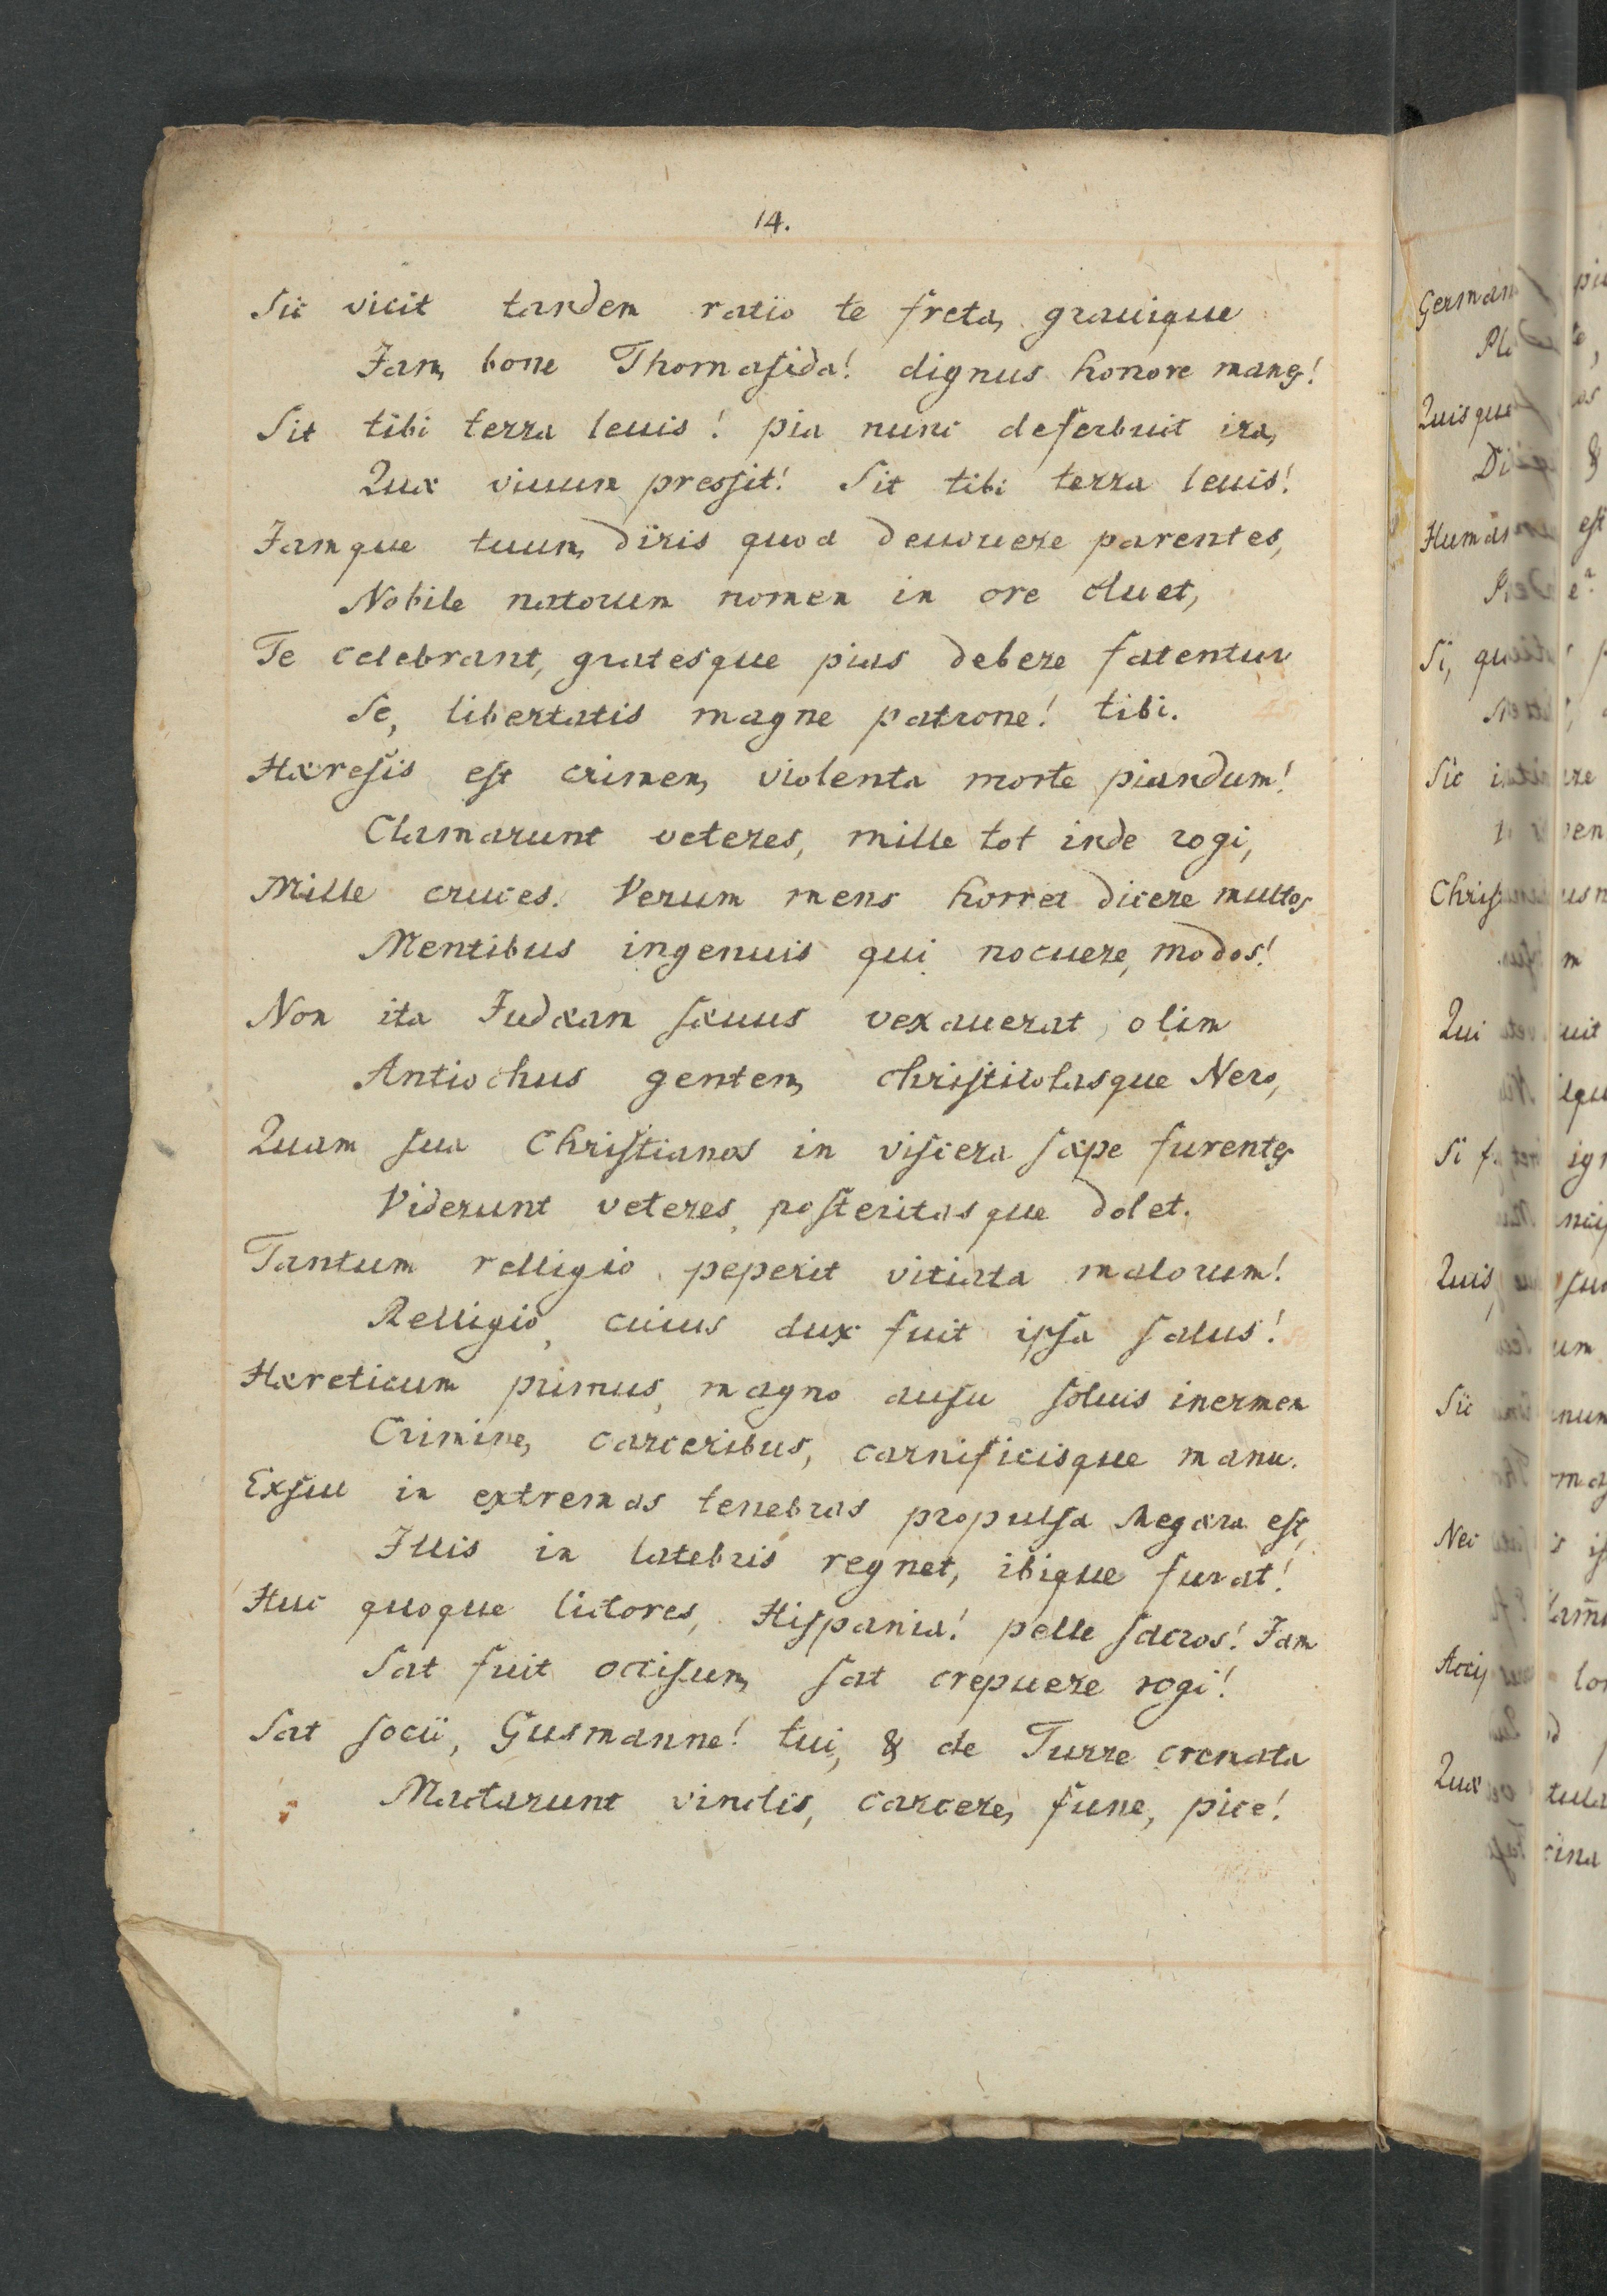 14.
Sic vicit tandem ratio te freta, grauique
Jam, bone Thomasida! dignus honore manes!
Sit tibi terra leuis! pia nunc deferbuit ira,
Quæ viuum pressit! Sit tibi terra leuis!
Jamque tuum, diris quod deuouere parentes,
Nobile natorum nomen in ore cluet,
Te celebrant, gratesque pias debere fatentur
Se, libertatis magne patrone! tibi.
Hæresis est crimen, violenta morte piandum!
Clamarunt veteres, mille tot inde rogi,
Mille cruces. Verum mens horret dicere multos
Mentibus ingenuis qui nocuere, modos!
Non ita Judæam sæuus vexauerat olim
Antiochus gentem, christicolasque Nero,
Quam sua Christianos in viscera sæpe furentes
Viderunt veteres, posteritasque dolet.
Tantum relligio peperit vitiata malorum!
Relligio, cuius dux fuit ipsa salus!
Hæreticum primus, magno ausu soluis inermem
Crimine, carceribus, carnificisque manu.
Exsul in extremas tenebras propulsa Megæra est,
Illis in latebris regnet, ibique furat!
Huc quoque lictores, Hispania! pelle sacros! Jam
Sat fuit occisum, sat crepuere rogi!
Sat socii, Gusmanne! tui, & de Turre cremata
Mactarunt vinclis, carcere, fune, pice!